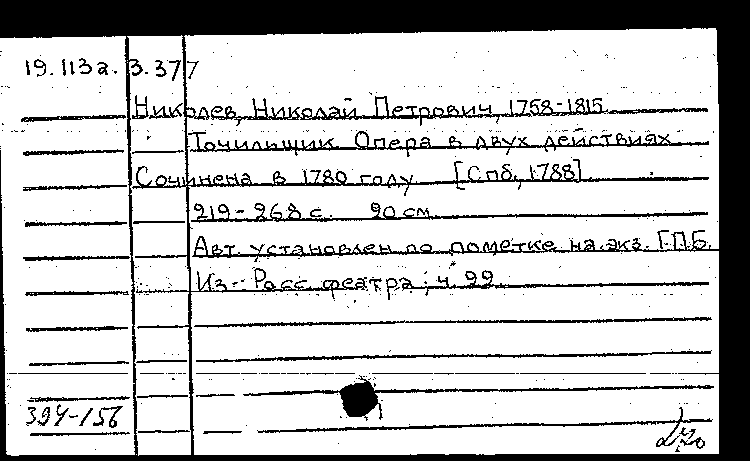 19.113а.3.377
Николев, Николай Петрович, 1758-1815
Точильщик Опера в двух действиях
Сочинена в 1780 году [Спб., 1788]
219-268 с. 20 см
Авт. установлен по пометке на экз. ГПБ.
Из: Росс. феатра, ч. 22.
394-156